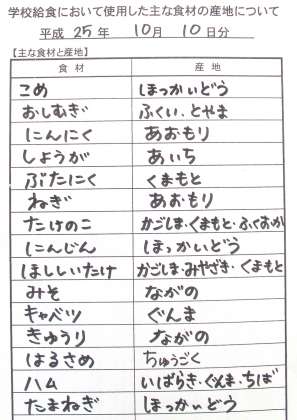 学校給食において使用した主な食材の産地について
平成 25 年 10月 10日分
【主な食材と産地】
食材 産地
こめ ほっかいどう
おしむぎ ふくい、とやま
にんにく あおもり
しょうが あいち
ぶたにく くまもと
ねぎ あおもり
たけのこ かごしま・くまもと・ふくおか
にんじん ほっかいどう
ほししいたけ かごしま・みやざき・くまもと
みそ ながの
キャベツ ぐんま
きゅうり ながの
はるさめ ちゅうごく
ハム いばらき・ぐんま・ちば
たまねぎ ほっかいどう